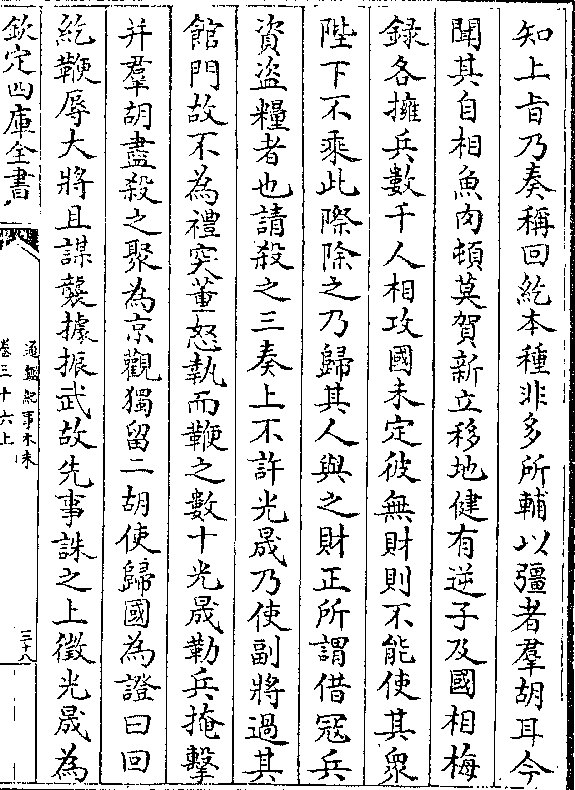 知上旨乃奏稱回紇本種非多所輔以彊者羣胡耳今
聞其自相魚肉頓莫賀新立移地健有逆子及國相梅
録各擁兵數千人相攻國未定彼無財則不能使其衆
陛下不乘此際除之乃歸其人與之財正所謂借寇兵
資盗糧者也請殺之三奏上不許光晟乃使副將過其
館門故不為禮突董怒執而鞭之數十光晟勒兵掩擊
并羣胡盡殺之聚為京觀獨留二胡使歸國為證曰回
紇鞭辱大將且謀襲據振武故先事誅之上徵光晟為
欽定四庫全書
通鑑紀事本末
卷三十六上
三十八